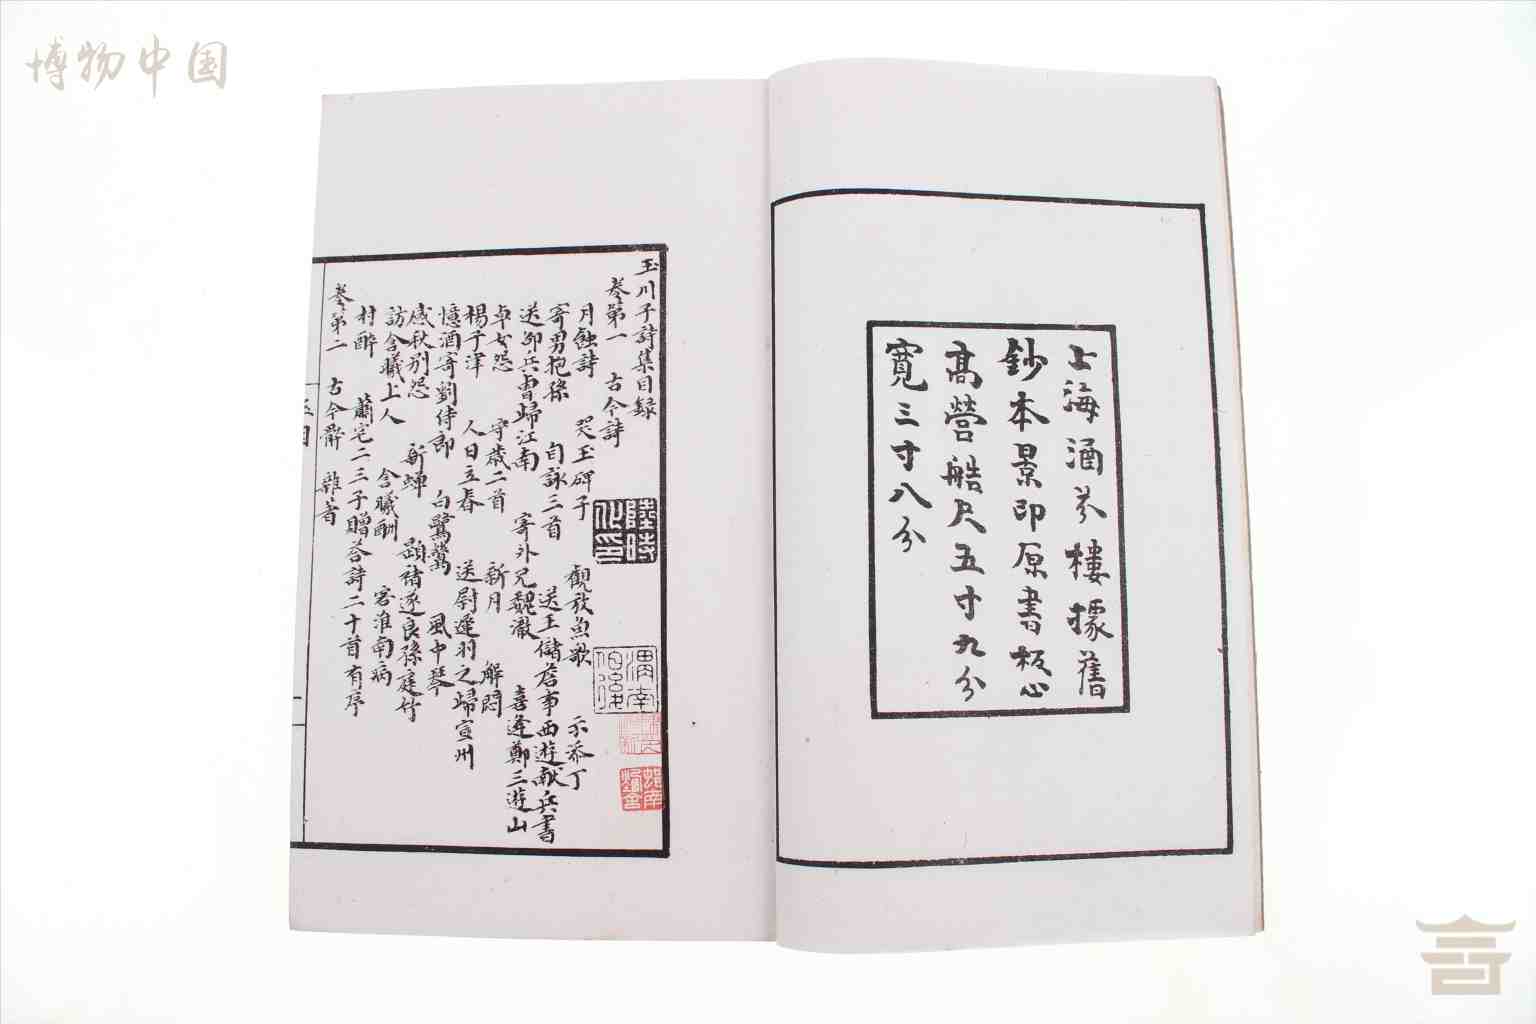 博物中国
上海涵芬樓據舊
鈔本景印原書板心
高營造尺五寸九分
寬三寸八分
玉川子詩集目録
卷第一 古今詩
月蝕詩 哭玉碑子 觀放魚歌 示添丁
寄男抱孫 自詠三首 送王儲詹事西遊献兵書
送邵兵曹歸江南 寄外兄魏澈 喜逢鄭三遊山
卓女怨 守歳二首 新月 解悶
楊子津 人日立春 送尉遲羽之歸宣州
憶酒寄劉侍郎 白鷺鷥 風中琴
感秋別怨 新蟬 題褚遂良孫庭竹
訪含曦上人 含曦酬 客淮南病
村醉 蕭宅二三子贈荅詩二十首有序
卷第二 古今辭 雜著
陸時化印
渭南伯後